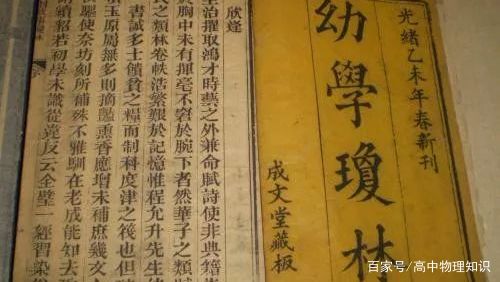 光緒乙未年春新刊
幼學瓊林
成文堂藏板
欣逢
主治擢取鴻才時藝之外兼命賦詩使非典籍
於胸中未有揮毫不窘於腕下者然華子之類賦
氏之類林卷軼浩繁艱於記憶惟程允升先生
書誠多士饋貧之糧而制科度津之筏也但
玉原屬無多則摘豔熏香應增未補庶幾文
驅使奈坊刻所補殊不雅馴在老成能知去
續貂若初學未識從違反云全璧一經習染
百家号/高中物理知识